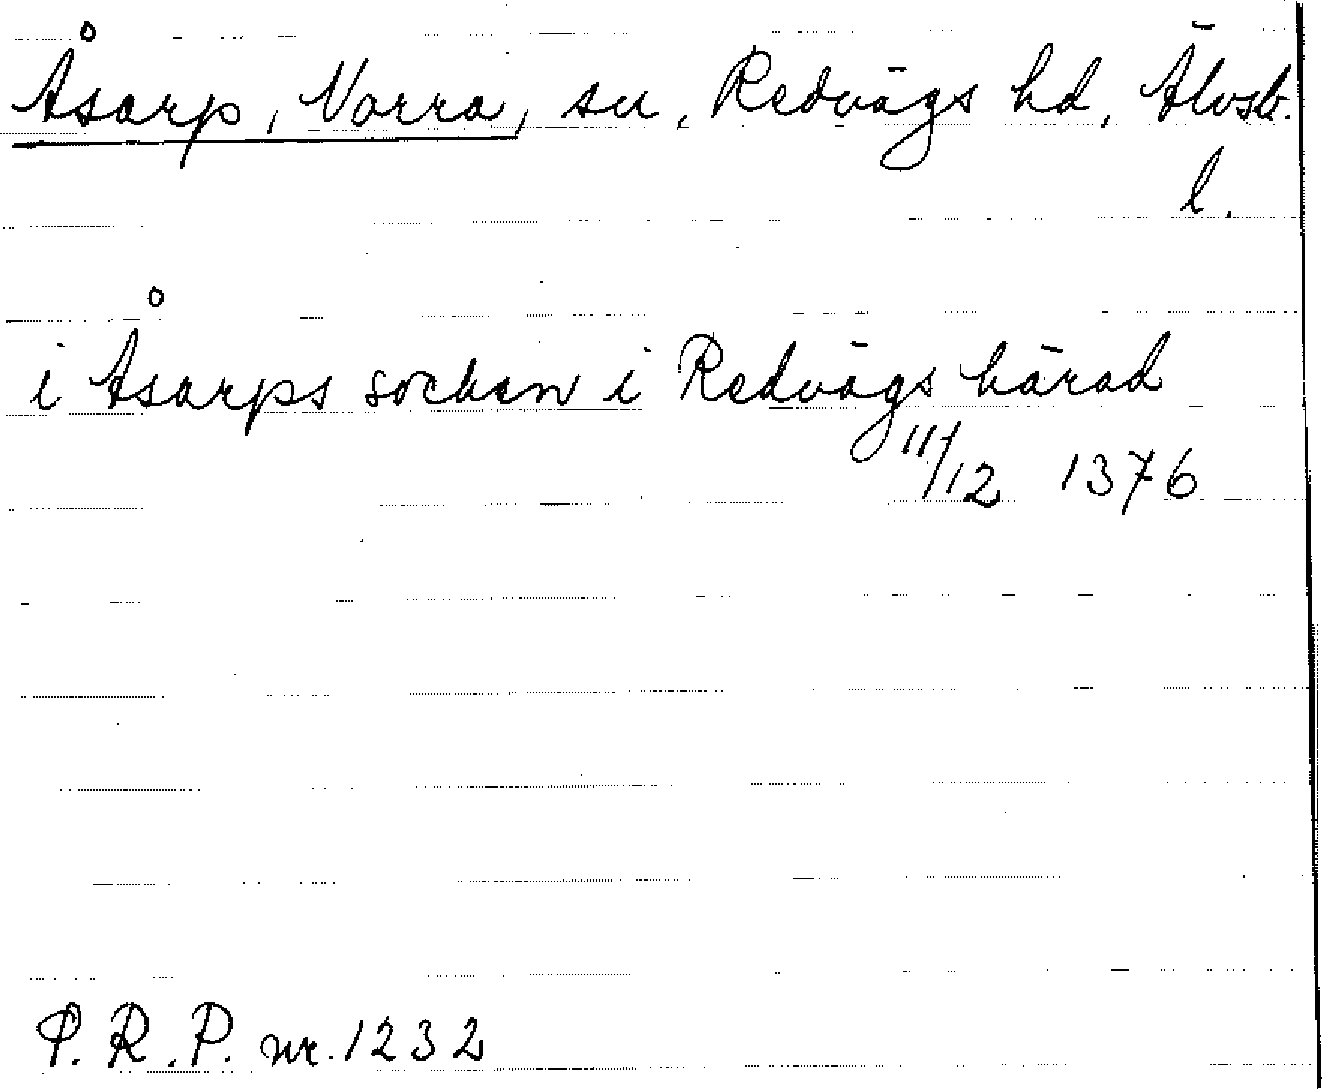 Åsarp, Norra, sn, Redvägs hd, Älvsb.
l.
i Åsarps socken i Redvägs härad
11/12 1376
P. R. P. nr. 1232